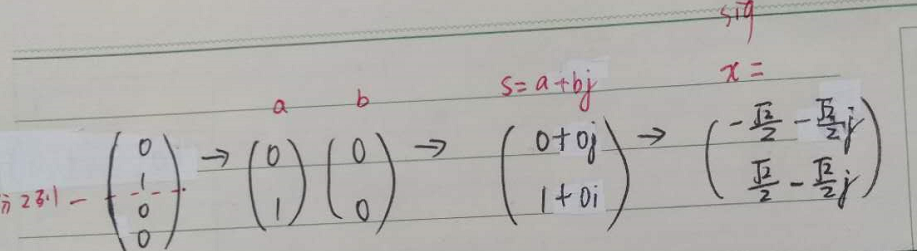 sig
a b s=a+bj x=
(0 1 0 0) → (0 1) (0 0) → (0+0j 1+0i) → (-√2/2 - √2/2 j √2/2 - √2/2 j)